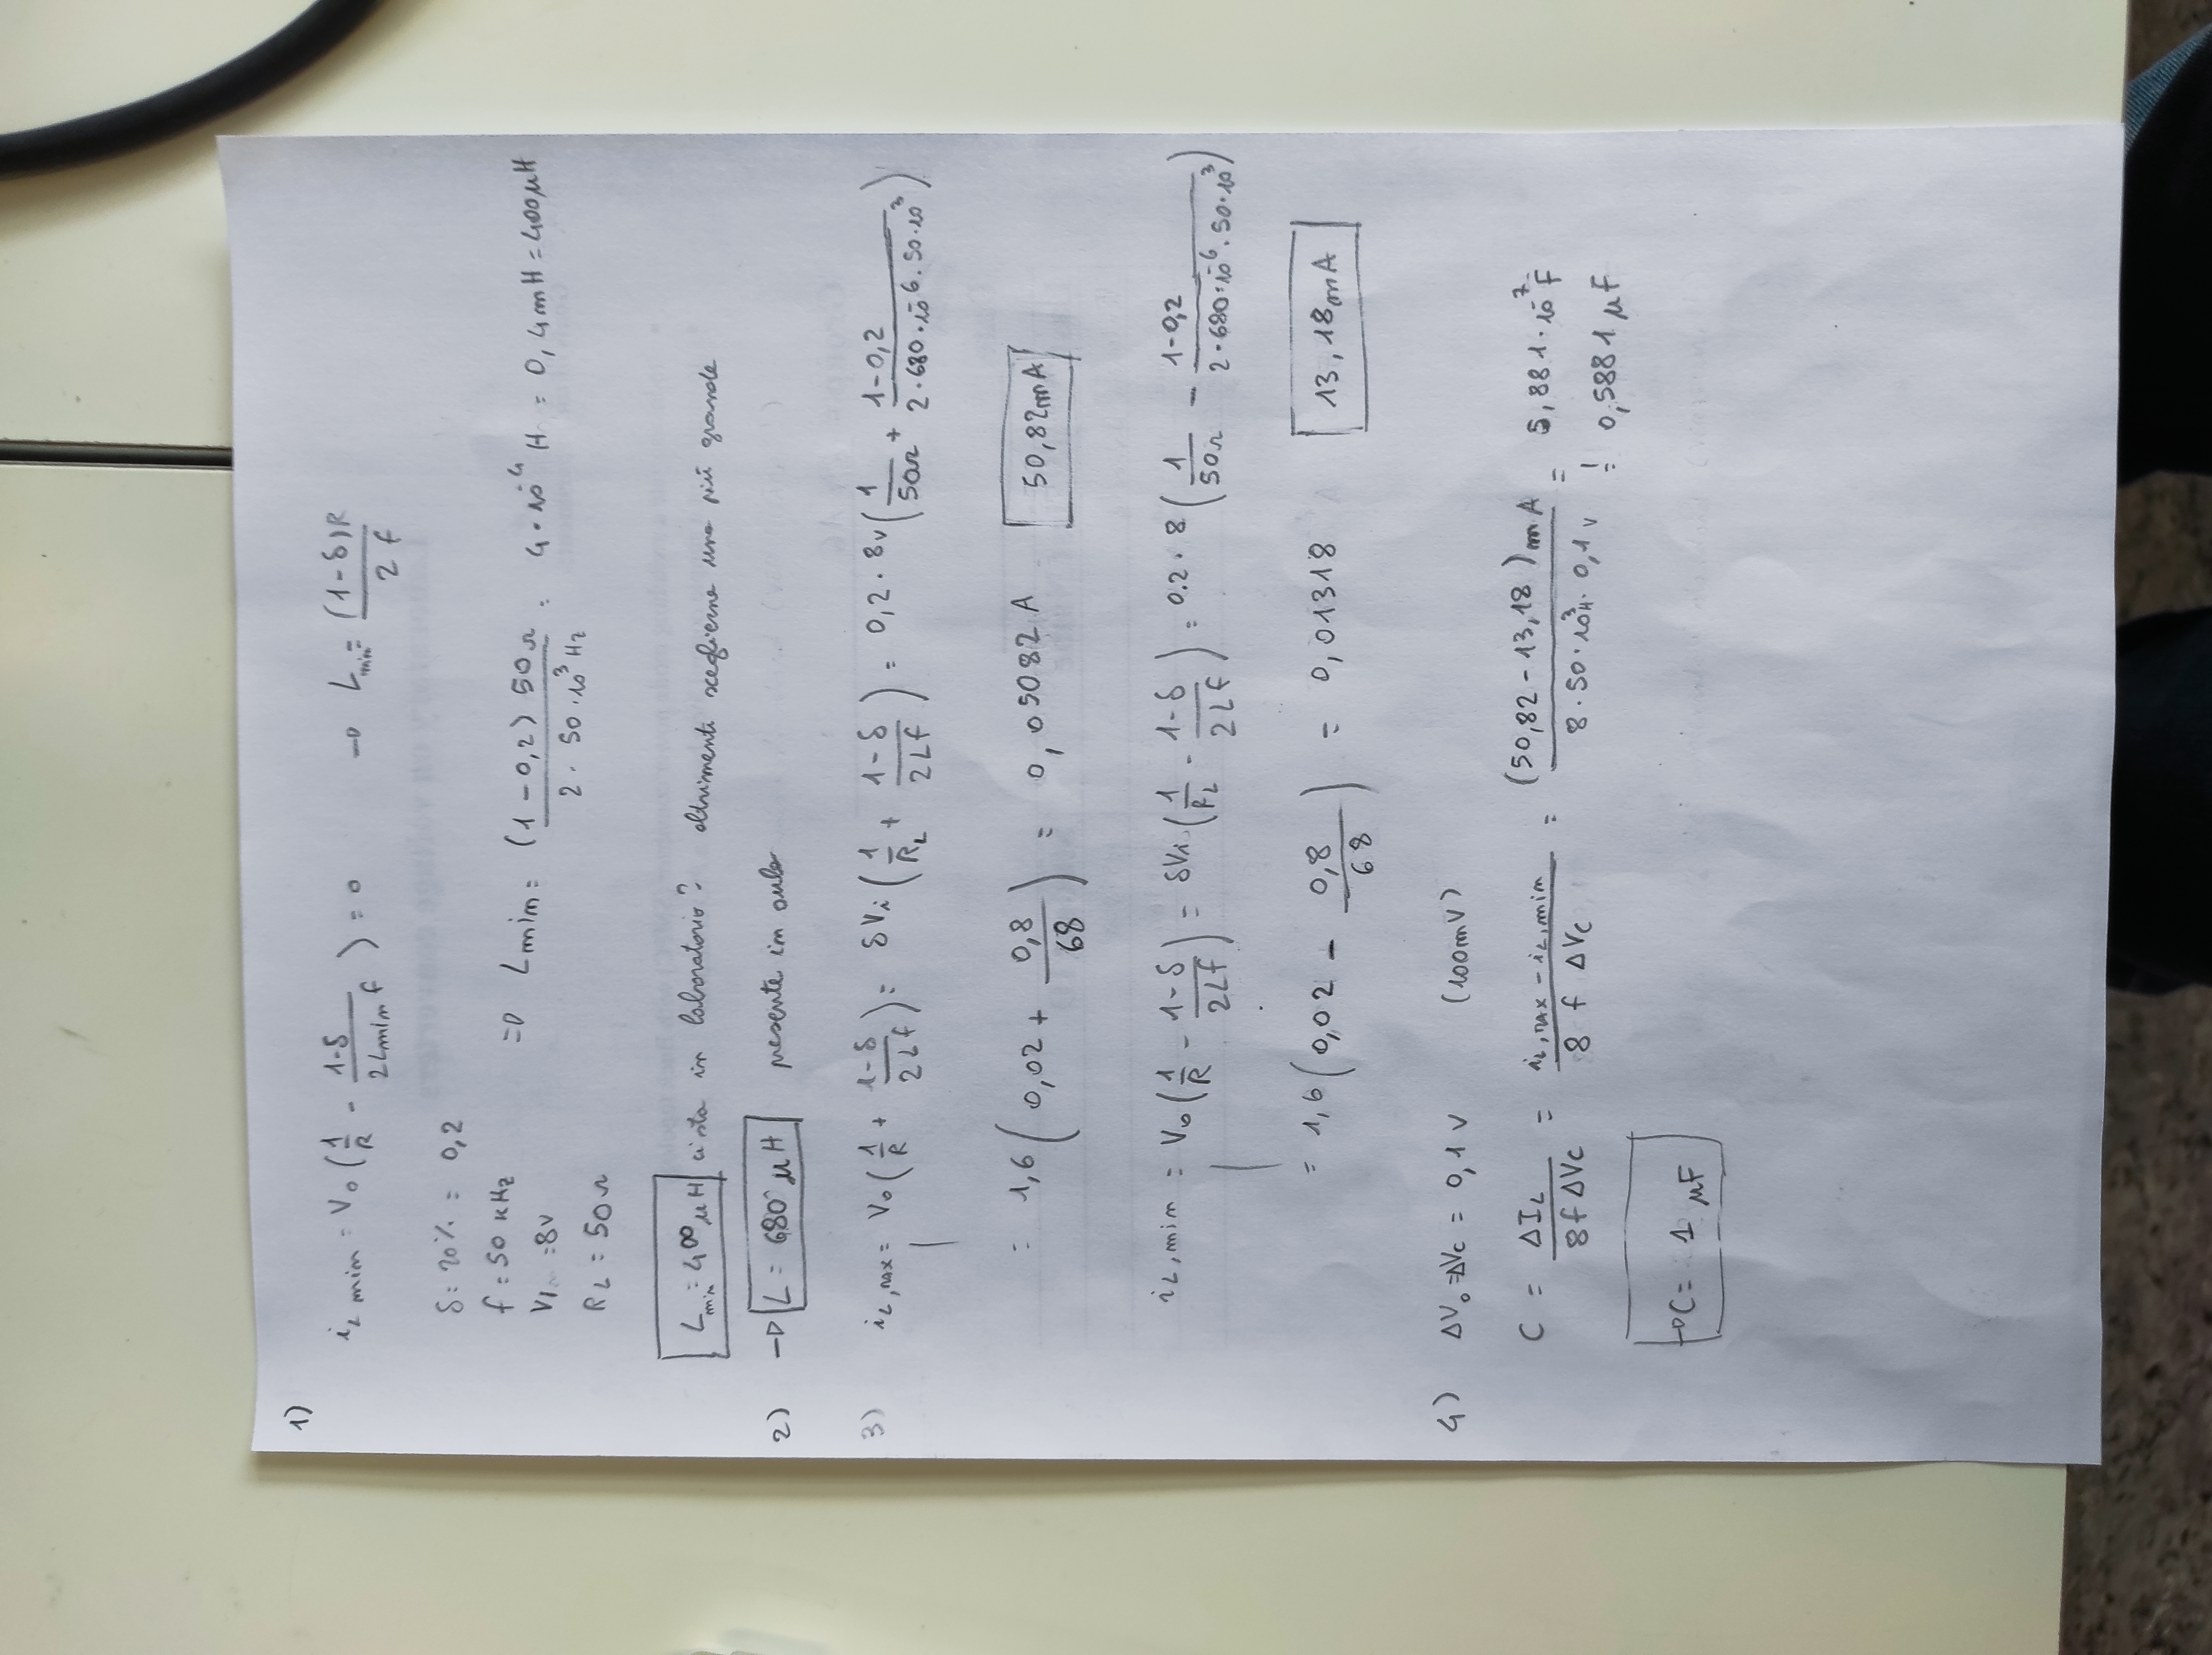 1)
i_L min = V_0 (1/R - (1-δ)/(2 Lmin f)) = 0 → L_min = (1-δ)R / 2 f
δ = 20% = 0,2
f = 50 kHz
Vi = 8V
R_L = 50Ω
⇒ Lmin = (1-0,2) 50Ω / 2 · 50·10³ Hz = 4·10⁻⁴ H = 0,4mH = 400μH
L_min = 400 μH ci sta in laboratorio? altrimenti sceglierne una più grande
2) → L = 680 μH presente in aula
3) i_L,MAX = V_0 (1/R + (1-δ)/(2Lf)) = δVi (1/R_L + (1-δ)/(2Lf)) = 0,2·8V (1/50Ω + (1-0,2)/(2·680·10⁻⁶·50·10³))
= 1,6 (0,02 + 0,8/68) = 0,05082 A 50,82mA
i_L,min = V_0 (1/R - (1-δ)/(2Lf)) = δVi (1/R_L - (1-δ)/(2Lf)) = 0.2·8 (1/50Ω - (1-0,2)/(2·680·10⁻⁶·50·10³))
= 1,6 (0,02 - 0,8/68) = 0,01318 13,18mA
4) ΔV_0 = ΔVc = 0,1 V (100mV)
C = ΔI_L / 8fΔVc = (i_L,MAX - i_L,min) / 8 f ΔVc = (50,82-13,18)mA / 8·50·10³H·0,1V = 5,881·10⁻⁷F
= 0,5881 μF
→ C = 1 μF